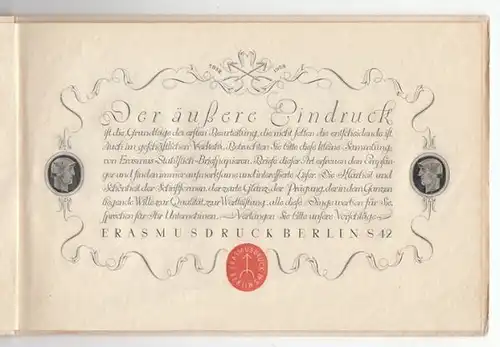 Der äußere Eindruck
ist die Grundlage der ersten Beurteilung, die nicht selten die entscheidende ist.
Auch im geschäftlichen Verkehr. Betrachten Sie bitte diese kleine Sammlung
von Erasmus-Stahlstich-Briefpapieren. Briefe dieser Art erfreuen den Empfän-
ger und finden immer aufmerksame und interessierte Leser. Die Klarheit und
Schönheit der Schriftformen, der zarte Glanz der Prägung, der in dem Ganzen
liegende Wille zur Qualität, zur Wertleistung, alle diese Dinge werben für Sie,
sprechen für Ihr Unternehmen. Verlangen Sie bitte unsere Vorschläge.
ERASMUSDRUCK BERLIN S 42
ERASMUSDRUCK